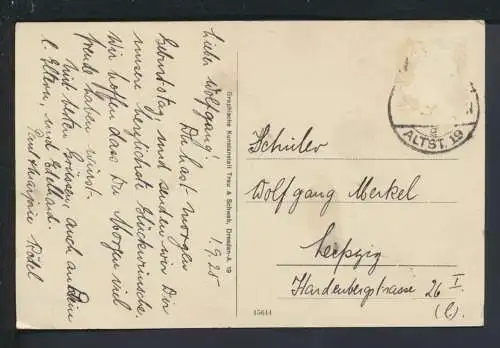 1.9.25
Lieber Wolfgang!
Du hast morgen
Geburtstag, und senden wir Dir
unsere herzlichste Glückwünsche.
Wir hoffen dass Du Morgen viel
Freude haben wirst.
Mit besten Grüssen, auch an Dein
l. Eltern, und Edelhard.
Paul
Graphische Kunstanstalt Trau & Schwab, Dresden-A. 19
45644
ALTST. 19
Schüler
Wolfgang Merkel
Leipzig
Hardenbergstrasse 26 I